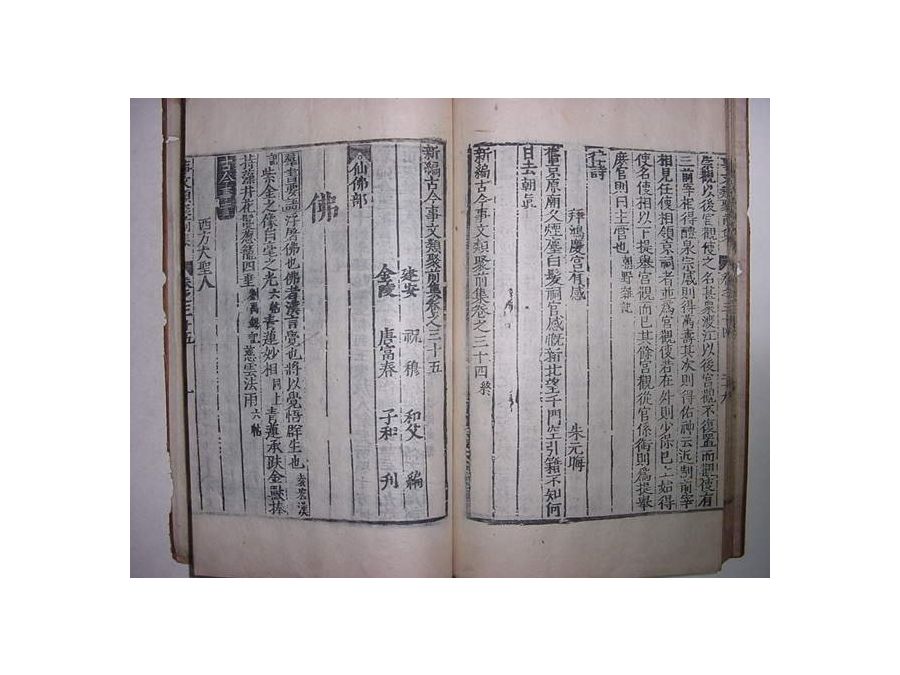 後有
觀使
置而
復
不
觀
宮
後
以
江
渡
名
之
使
觀
官
後
以
三
前宰相得醴泉宗戚則得萬壽其次則得佑神云近制前宰
相見任使相領京祠者並為宮觀使若在外則少保已上如得
使名使相以下提舉宮觀而已其餘宮觀從官係銜則為提舉
庶官則曰主管也 朝野雜記
律詩
拜鴻慶宮有感 朱元晦
舊京原廟久煙塵白髮祠官感慨新北望千門空引籍不知何
日去朝真
新編古今事文類聚前集卷之三十四 終
新編古今事文類聚前集卷之三十五
建安 祝穆 和父 編
金陵 唐富春 子和 刊
仙佛部
佛
羣書要語浮屠佛也佛者漢言覺也將以覺悟群生也 袁宏漢
紀 紫金之像白毫之光 六帖 青蓮妙相 同上 青蓮承趺金獸捧
慈雲法雨 六帖
古今事實
西方大聖人